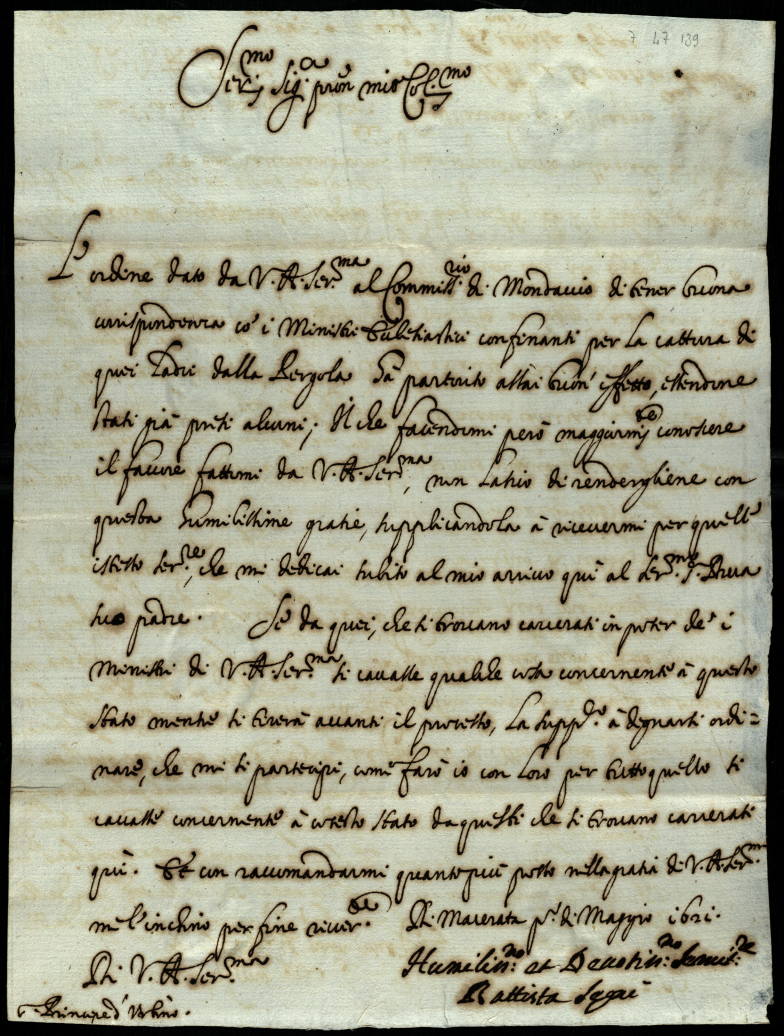 7 47 139
Ser.mo Sig.r pron mio Col.mo
L'ordine dato da V. A. Ser.ma al Commiss.rio di Mondavio di tener buona
corrispondenza cò i Ministri Ecclesiastici confinanti per la cattura di
quei ladri dalla Pergola hà partorito assai buon' effetto, essendone
stati già presi alcuni; Il che facendomi però maggiorm.te conoscere
il favore fattomi da V. A. Ser.ma, non lascio di rendergliene con
questa humilissime gratie, supplicandola à ricevermi per quell'
istesso ser.re, che mi dedicai subito al mio arrivo quì al Ser.mo S. Duca
suo padre. Se da quei, che si trovano carcerati in poter de' i
Ministri di V. A. Ser.ma si cavasse qualche cosa concernente à questo
stato mentre si tirerà avanti il processo, la supp.co à degnarsi ordi=
nare, che mi si partecipi, come farò io con loro per tutto quello si
cavasse concernente à cotesto stato da questi che si trovano carcerati
quì. Et con raccomandarmi quanto più posso nella gratia di V. A. Ser.ma
me l'inchino per fine river.te Di Macerata p.o di Maggio 1621.
Di V. A. Ser.ma
Humiliss.mo et Devotiss.mo Servit.re
Battista
S. Principe d' Urbino.